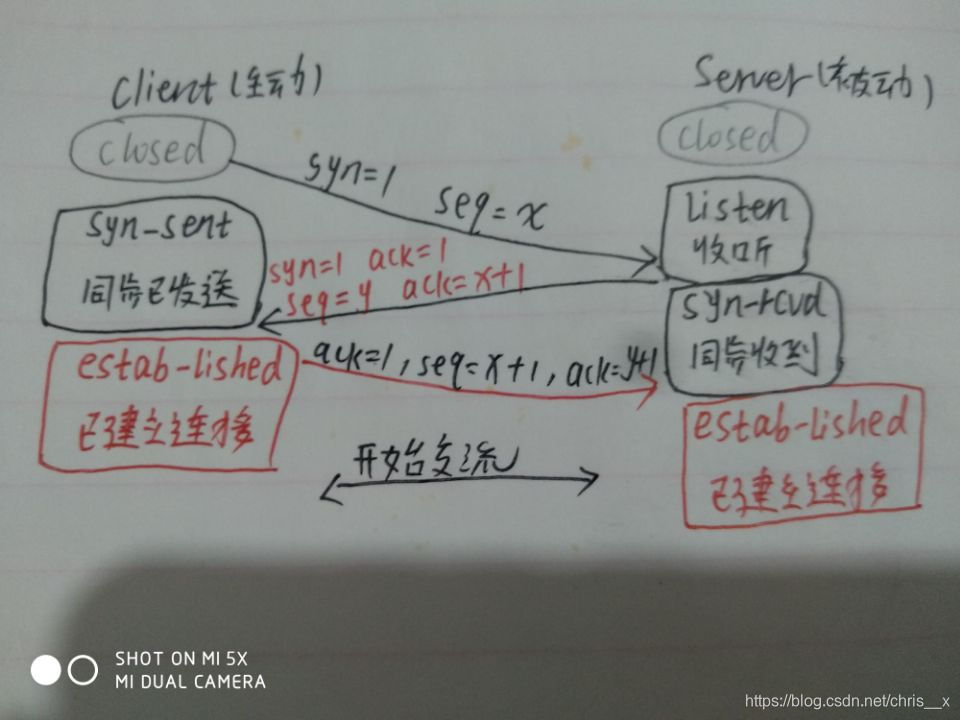 Client(主动)
Server(被动)
closed
closed
syn=1
seq=x
listen
收听
syn-sent
同步已发送
syn=1 ack=1
seq=y ack=x+1
syn-rcvd
同步收到
estab-lished
已建立连接
ack=1,seq=x+1,ack=y+1
estab-lished
已建立连接
开始交流
SHOT ON MI 5X
MI DUAL CAMERA
https://blog.csdn.net/chris__x